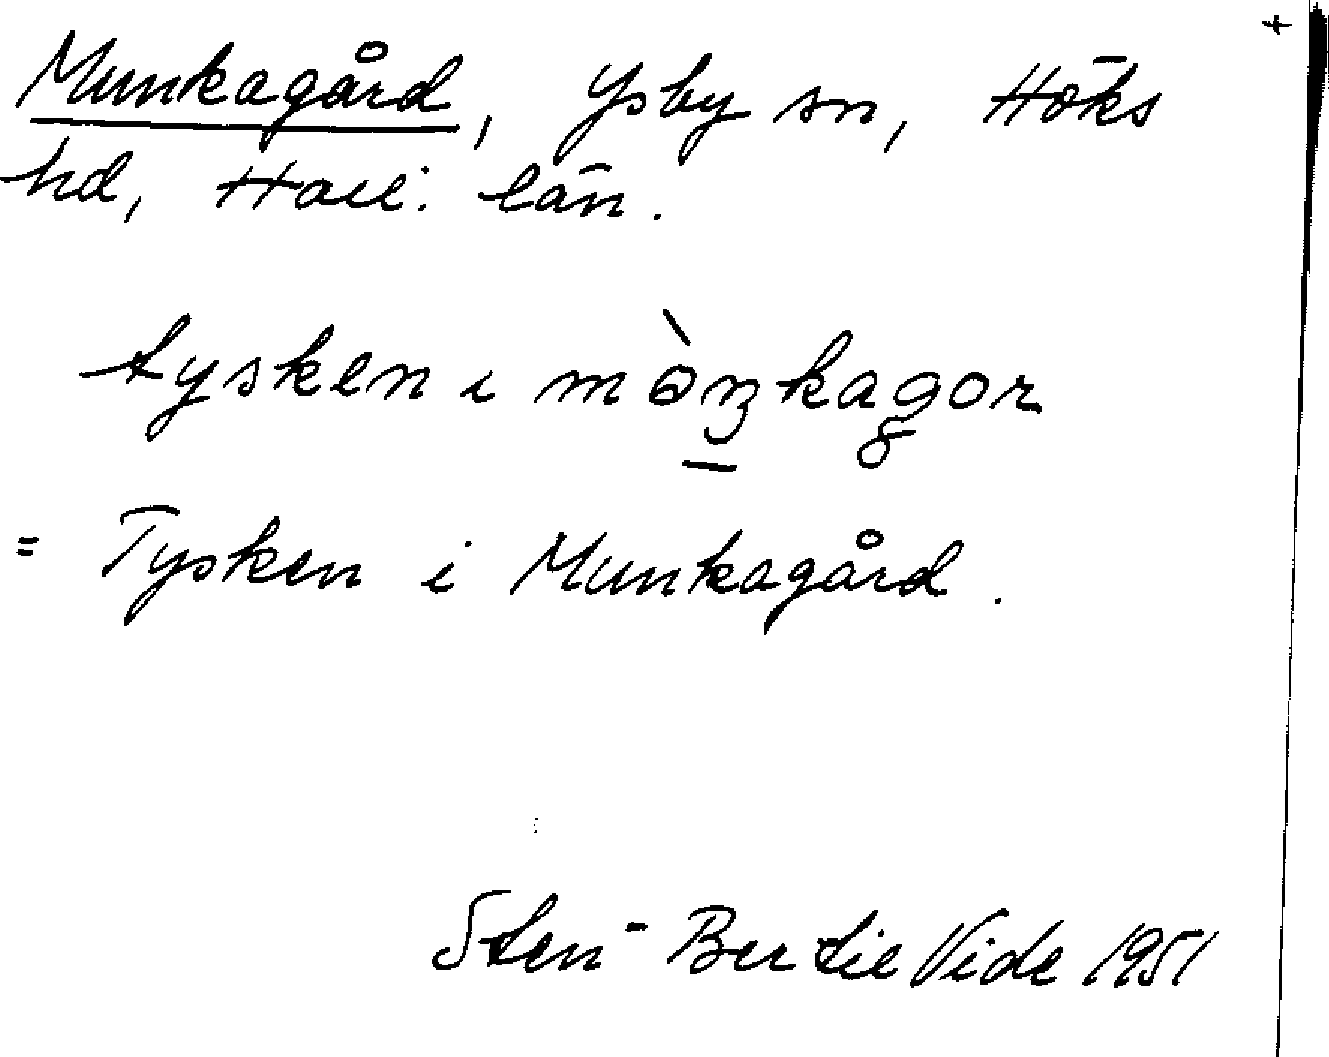 +
Munkagård, Ysby sn, Höks
hd, Hall. län.
tysken i mòŋkagor
= Tysken i Munkagård.
Sten-Bertil Vide 1951